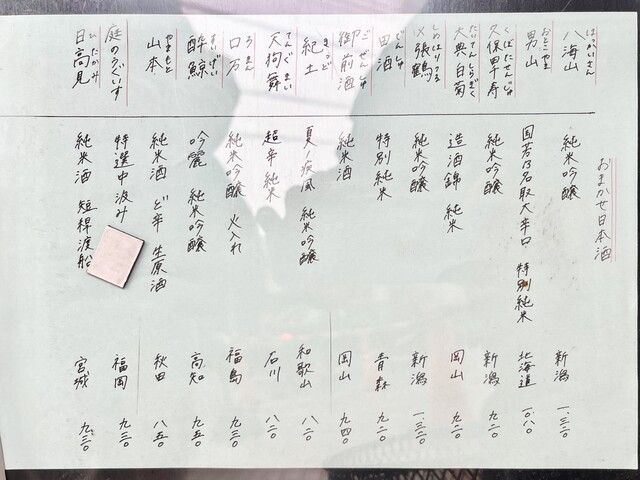 おまかせ日本酒
はっかいさん
八海山 純米吟醸 新潟 一.三二〇
おとこやま
男山 国芳乃名取大辛口 特別純米 北海道 一.〇八〇
くぼたせんじゅ
久保田千寿 純米吟醸 新潟 九二〇
たいてんしらぎく
大典白菊 造酒錦 純米 岡山 九二〇
しめはりつる
〆張鶴 純米吟醸 新潟 一.三二〇
でんしゅ
田酒 特別純米 青森 九二〇
ごぜんしゅ
御前酒 純米酒 岡山 九四〇
きっど
紀土 夏ノ疾風 純米吟醸 和歌山 八二〇
てんぐまい
天狗舞 超辛純米 石川 八二〇
ろまん
ロ万 純米吟醸 火入れ 福島 九三〇
すいげい
酔鯨 吟麗 純米吟醸 高知 九五〇
やまもと
山本 純米酒 ど辛 生原酒 秋田 八五〇
庭のうぐいす 特選中汲み 福岡 九三〇
ひたかみ
日高見 純米酒 短稈渡船 宮城 九三〇